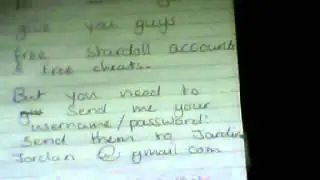 give you guys
free stardoll accounts
& free cheats.
But you need to
Send me your
username/password:
Send them to
Jordan @ gmail com